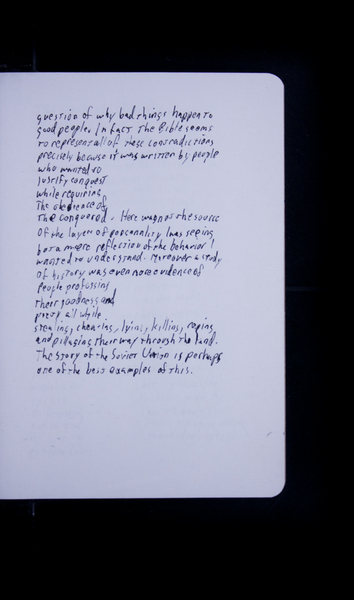 question of why bad things happen to
good people. In fact The Bible seems
to represent all of these contradictions
precisely because it was written by people
who wanted to
justify conquest
while requiring
The obedience of
The conquered. Here was not the source
of the layers of personality I was seeing
but a mere reflection of the behavior I
wanted to understand. Moreover a study
of history was even more evidence of
people professing
their goodness and
piety all while
stealing, cheating, lying, killing, raping,
and pillaging their way through the land.
The story of the Soviet Union is perhaps
one of the best examples of this.